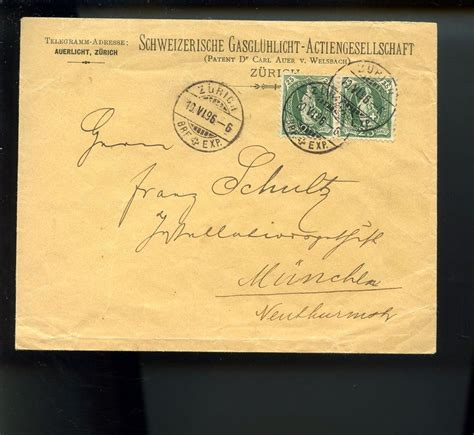 TELEGRAMM-ADRESSE:
AUERLICHT, ZÜRICH
SCHWEIZERISCHE GASGLÜHLICHT-ACTIENGESELLSCHAFT
(PATENT Dr CARL AUER V. WELSBACH)
ZÜRICH
ZÜRICH
10.VI.96-6
BRF. EXP.
Herrn
Franz Schultz
Installationsgeschäft
München